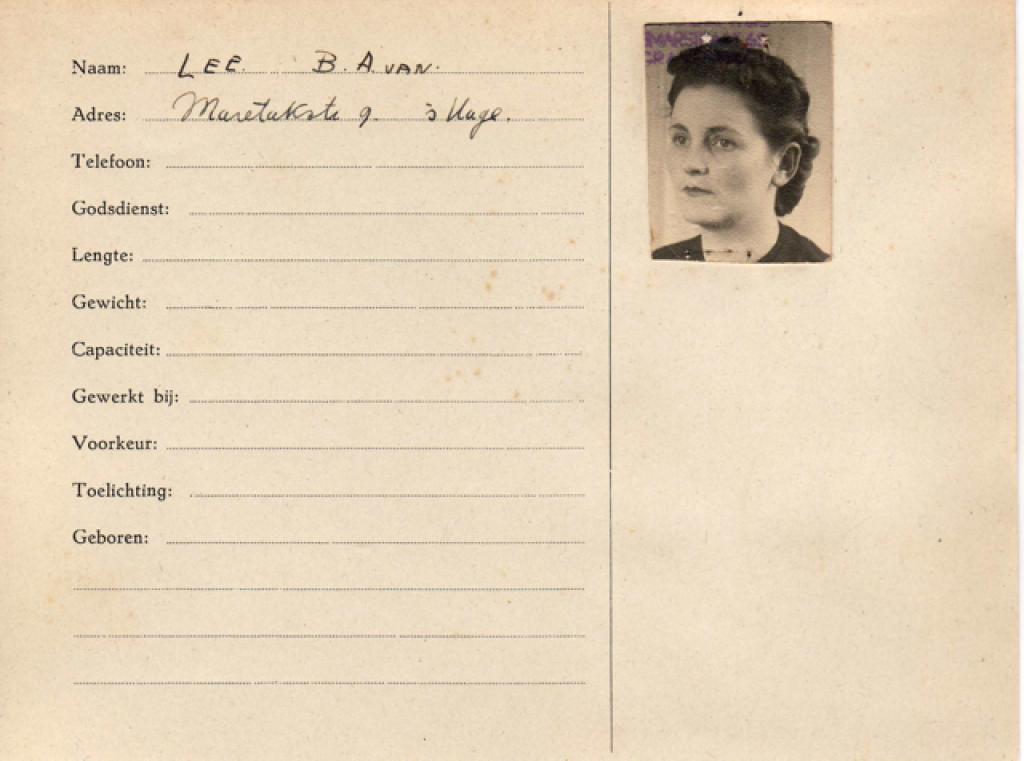 Naam: LEE. B. A. VAN.
Adres: Maretakstr 9. 's Hage.
Telefoon:
Godsdienst:
Lengte:
Gewicht:
Capaciteit:
Gewerkt bij:
Voorkeur:
Toelichting:
Geboren: